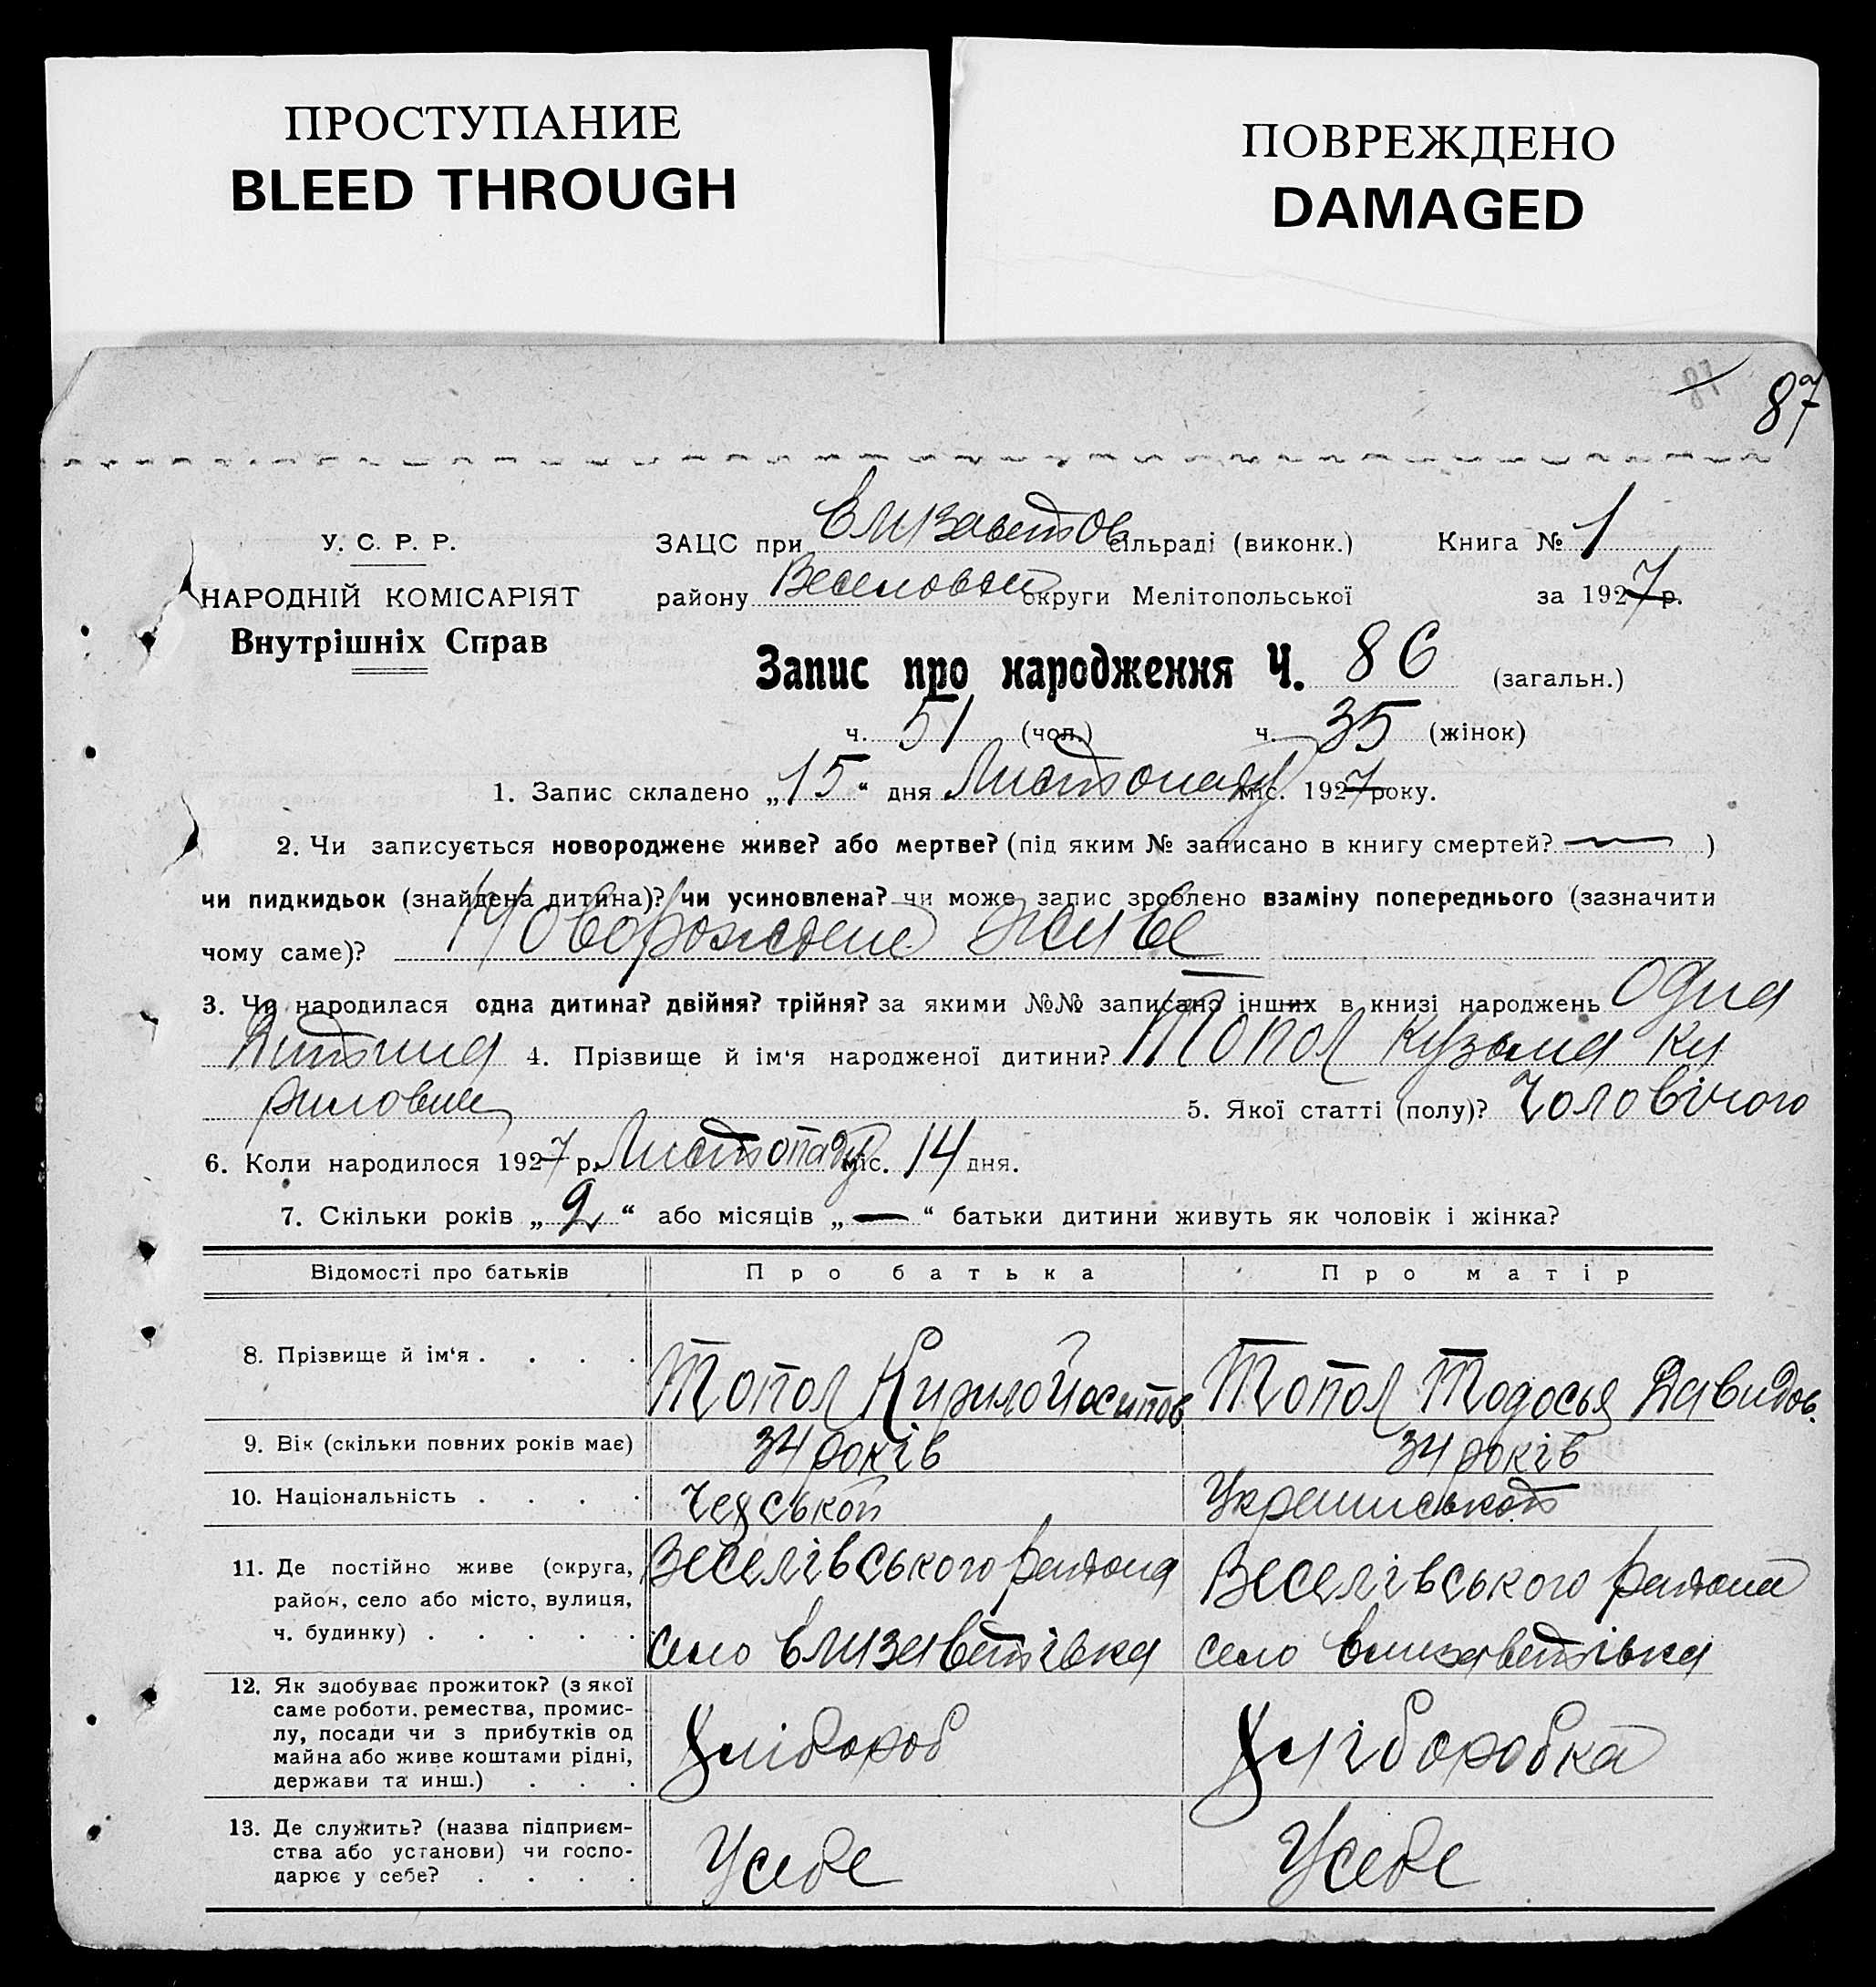 ПРОСТУПАНИЕ
BLEED THROUGH
ПОВРЕЖДЕНО
DAMAGED
87
87
У. С. Р. Р.
НАРОДНІЙ КОМІСАРІЯТ
Внутрішніх Справ
ЗАЦС при Елизаветов сільраді (виконк.) Книга № 1
району Веселовск округи Мелітопольської за 1927 р.
Запис про народження Ч. 86 (загальн.)
ч. 51 (чол.) ч. 35 (жінок)
1. Запис складено „15“ дня Листопаду міс. 1927 року.
2. Чи записується новороджене живе? або мертве? (під яким № записано в книгу смертей? — )
чи пидкидьок (знайдена дитина)? чи усиновлена? чи може запис зроблено взаміну попереднього (зазначити
чому саме)? Новорождене живе
3. Чи народилася одна дитина? двійня? трійня? за якими №№ записано інших в книзі народжень Одна
Дитина 4. Прізвище й ім‘я народженої дитини? Топол Кузьма Ки
рилович 5. Якої статті (полу)? Чоловічого
6. Коли народилося 1927 р. Листопаду міс. 14 дня.
7. Скільки років „2“ або місяців „—“ батьки дитини живуть як чоловік і жінка?
Відомості про батьків Про батька Про матір
8. Прізвище й ім‘я . . . . Топол Кирило Йосипов. Топол Тодосья Давидов.
9. Вік (скільки повних років має) 34 років 34 років
10. Національність . . . . Чеської Української
11. Де постійно живе (округа, район, село або місто, вулиця, ч. будинку) . . . . .
Веселівського района Веселівського района
село Елизаветівка село Елизаветівка
12. Як здобуває прожиток? (з якої
саме роботи, ремества, промис-
лу, посади чи з прибутків од
майна або живе коштами рідні,
держави та инш.) . . .
Хлібороб Хліборобка
13. Де служить? (назва підприєм-
ства або установи) чи госпо-
дарює у себе? . . . .
Усебе Усебе